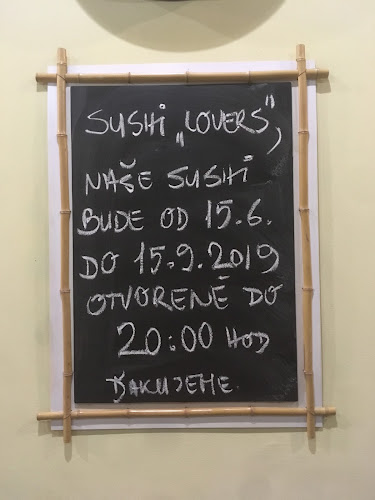 SUSHI „LOVERS",
NAŠE SUSHI
BUDE OD 15.6.
DO 15.9.2019
OTVORENÉ DO
20:00 HOD
ĎAKUJEME.